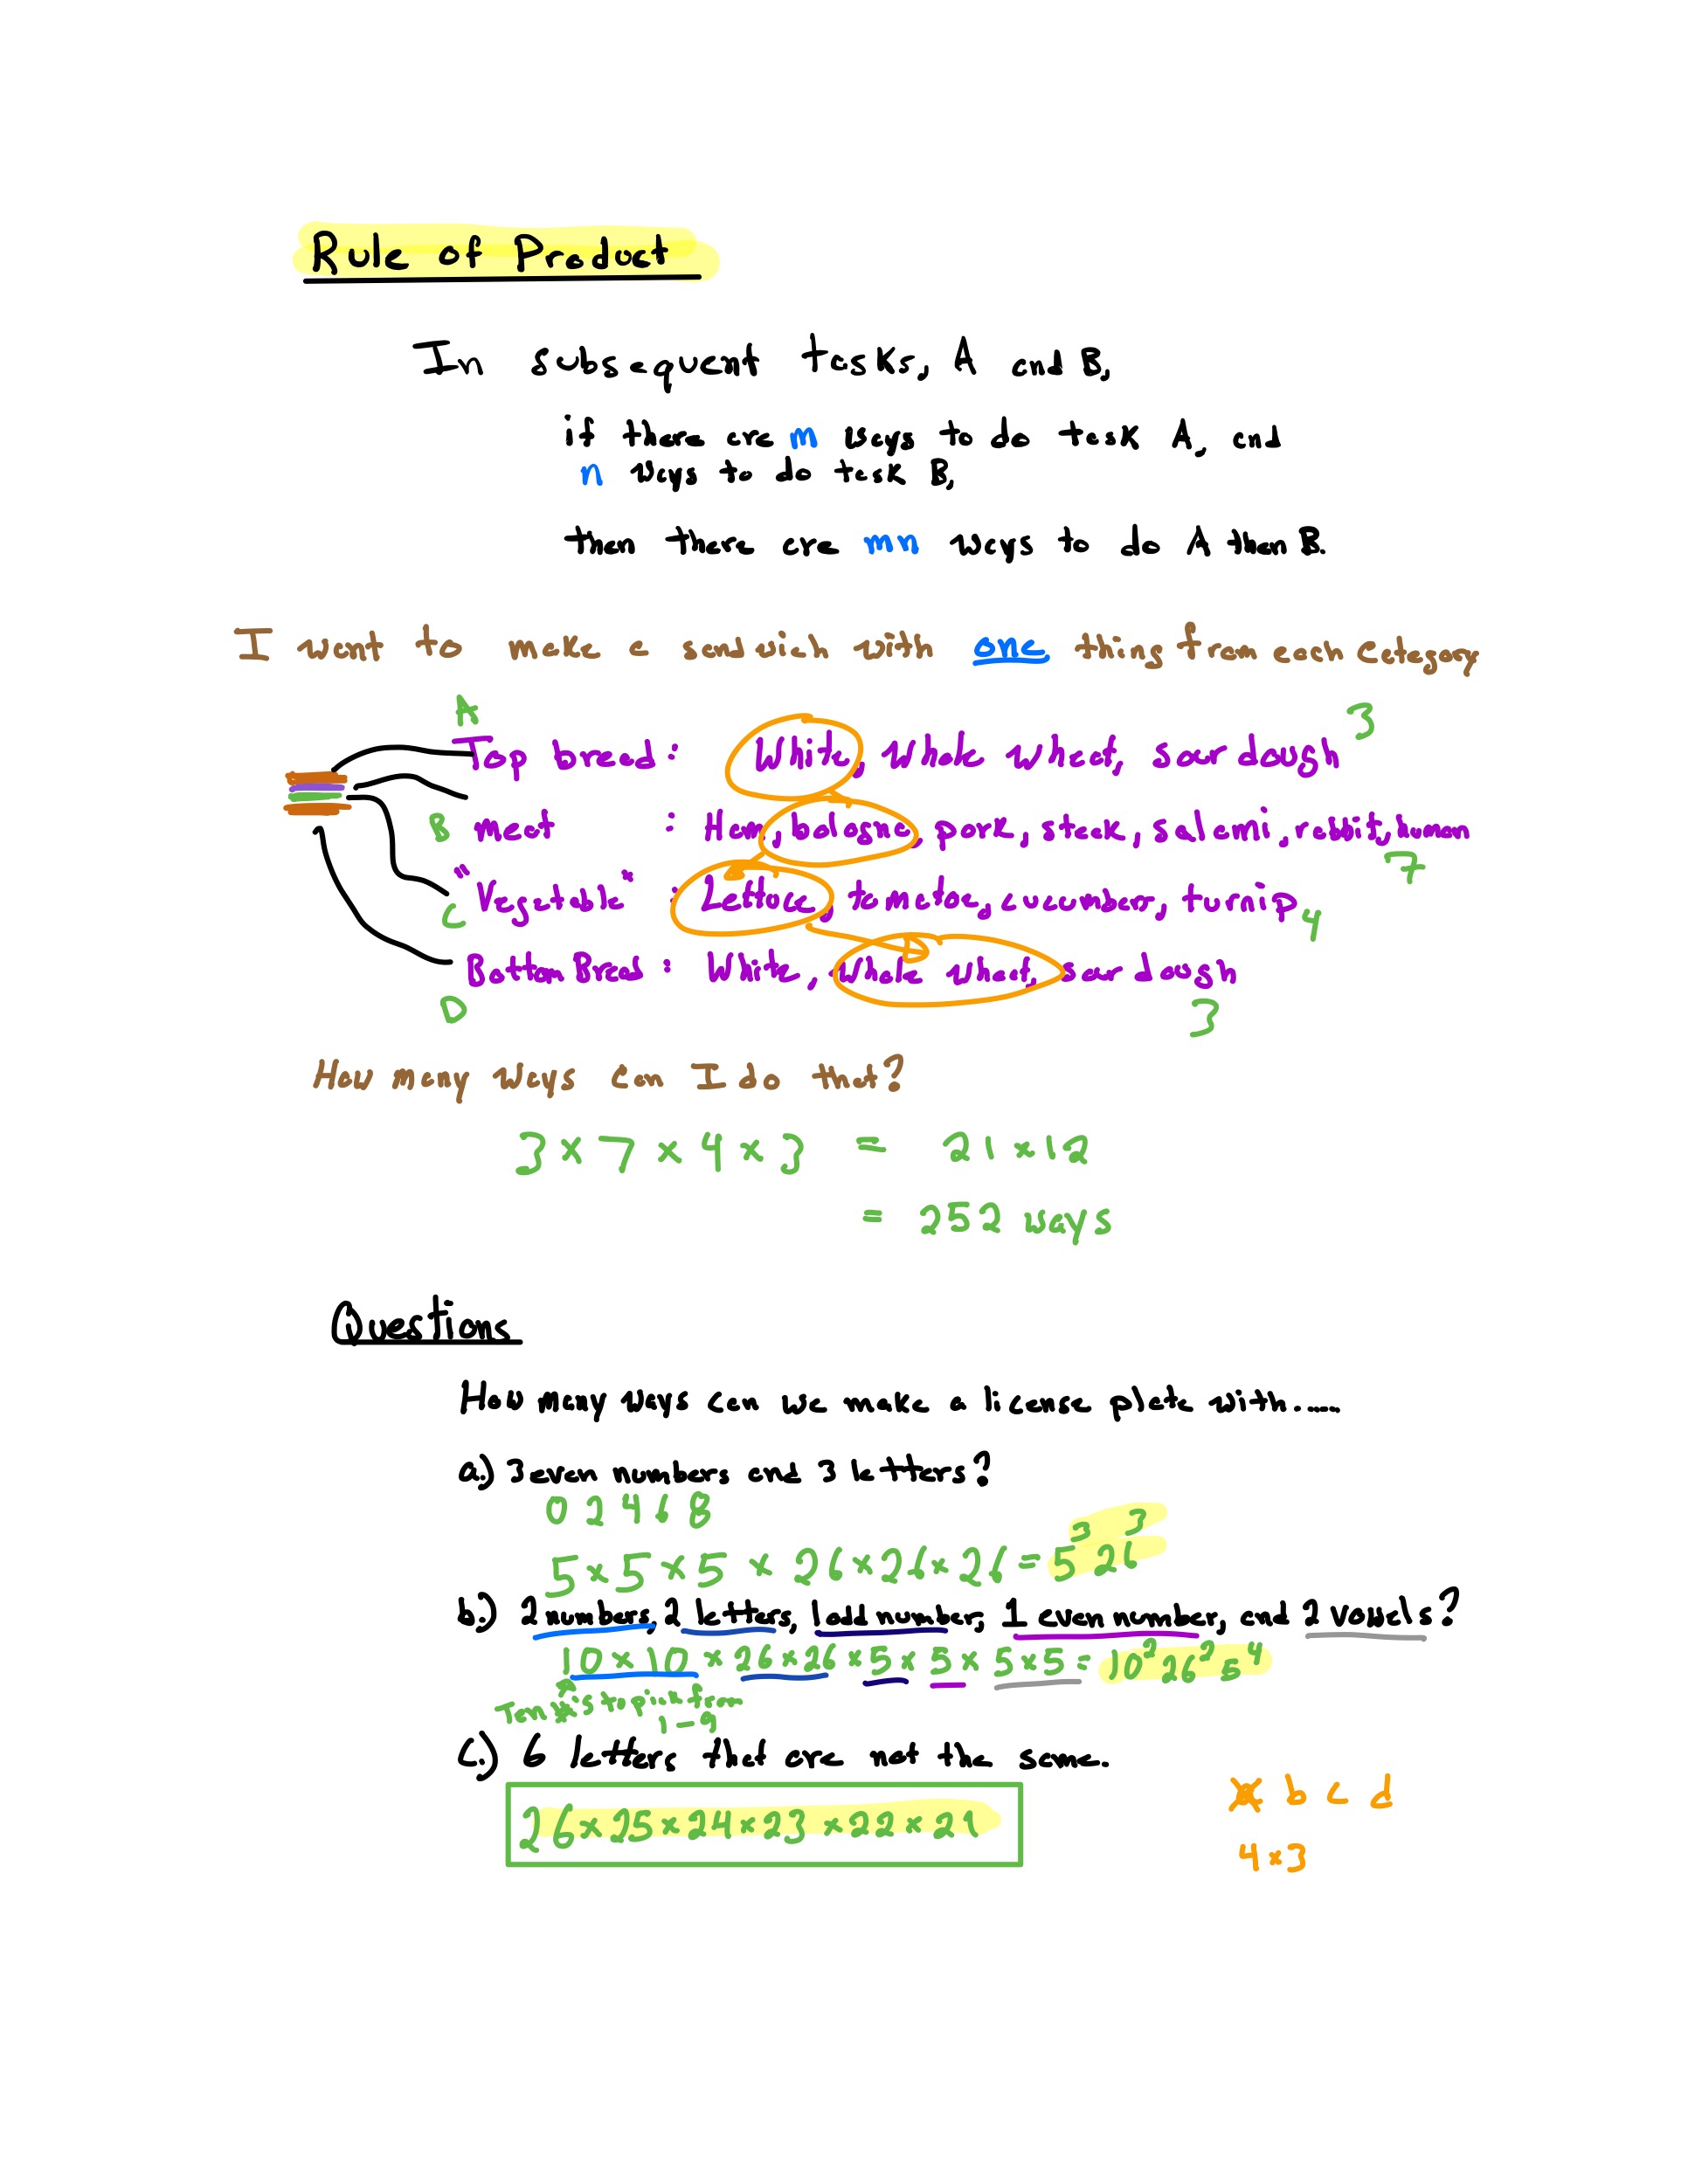 Rule of Product
In subsequent tasks, A and B,
if there are m ways to do task A, and
n ways to do task B,
then there are mn ways to do A then B.
I want to make a sandwich with one thing from each category
A
Top bread: White, Whole wheat, sour dough 3
B meat : Ham, bologna, pork, steak, salami, rabbit, human
7
"Vegetable" : Lettuce, tomatoe, cucumbers, turnip 4
C
Bottom Bread: White, Whole wheat, sour dough
D 3
How many ways can I do that?
3 × 7 × 4 × 3 = 21 × 12
= 252 ways
Questions
How many ways can we make a license plate with......
a.) 3 even numbers and 3 letters?
0 2 4 6 8
5 × 5 × 5 × 26 × 26 × 26 = 5³ 26³
b.) 2 numbers, 2 letters, 1 odd number, 1 even number, and 2 vowels?
10 × 10 × 26 × 26 × 5 × 5 × 5 × 5 = 10² 26² 5⁴
Ten #'s to pick from
1 - 9
c.) 6 letters that are not the same.
26 × 25 × 24 × 23 × 22 × 21
a b c d
4 × 3